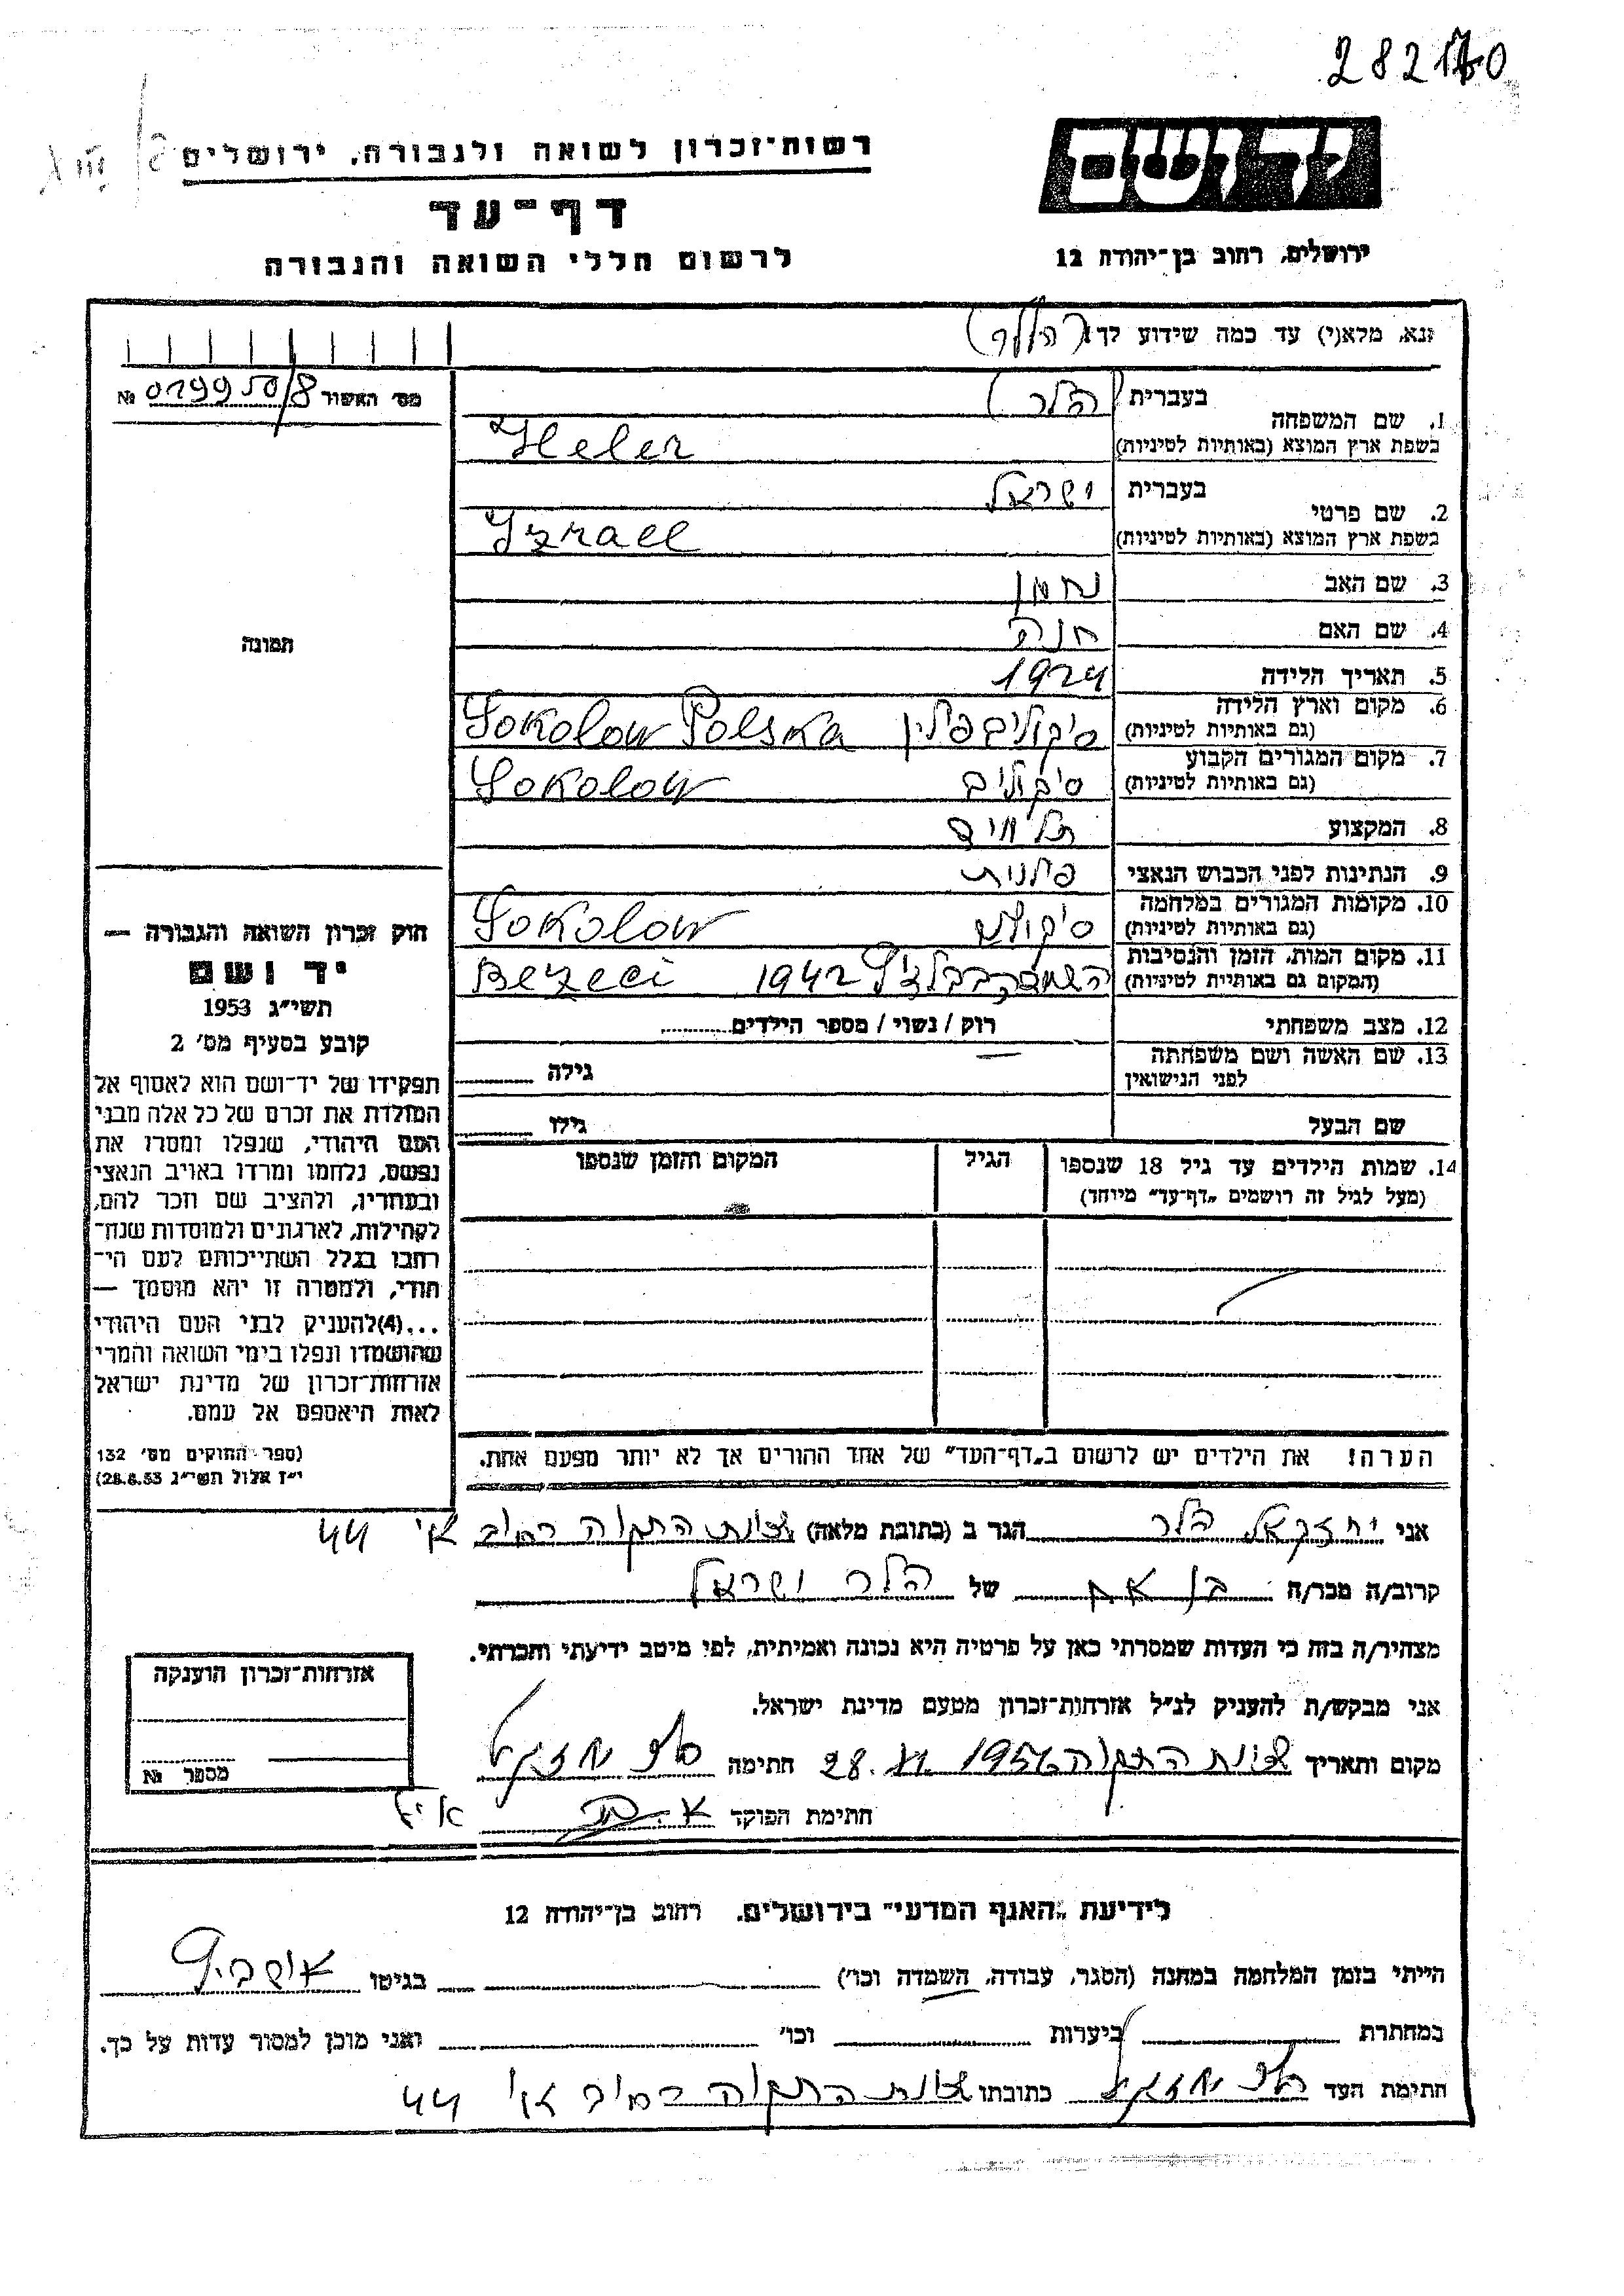 282170
יד ושם
רשות־זכרון לשואה ולגבורה, ירושלים
דף־עד
לרשום חללי השואה והגבורה
ירושלים, רחוב בן־יהודה 12
נא, מלא(י) עד כמה שידוע לך! (הלר)
מס׳ האשור № 019950/8
1. שם המשפחה בעברית (הלר)
בשפת ארץ המוצא (באותיות לטיניות) Heler
2. שם פרטי בעברית ישראל
בשפת ארץ המוצא (באותיות לטיניות) Izrael
3. שם האב נחמן
4. שם האם חנה
תמונה
5. תאריך הלידה 1924
6. מקום וארץ הלידה (גם באותיות לטיניות) סיקולוב פולין Sokolow Polska
7. מקום המגורים הקבוע (גם באותיות לטיניות) סיקולוב Sokolow
8. המקצוע תלמיד
9. הנתינות לפני הכבוש הנאצי פולנית
10. מקומות המגורים במלחמה (גם באותיות לטיניות) סיקולוב Sokolow
11. מקום המות, הזמן והנסיבות (המקום גם באותיות לטיניות) 1942
12. מצב משפחתי רוק / נשוי / מספר הילדים
13. שם האשה ושם משפחתה לפני הנישואין גילה
שם הבעל גילו
14. שמות הילדים עד גיל 18 שנספו (מעל לגיל זה רושמים „דף־עד״ מיוחד) הגיל המקום והזמן שנספו
הערה! את הילדים יש לרשום ב„דף־העד״ של אחד ההורים אך לא יותר מפעם אחת.
חוק זכרון השואה והגבורה —
יד ושם
תשי״ג 1953
קובע בסעיף מס׳ 2
תפקידו של יד־ושם הוא לאסוף אל
המולדת את זכרם של כל אלה מבני
העם היהודי, שנפלו ומסרו את
נפשם, נלחמו ומרדו באויב הנאצי
ובעוזריו, ולהציב שם וזכר להם,
לקהילות, לארגונים ולמוסדות שנח־
רבו בגלל השתייכותם לעם הי־
הודי, ולמטרה זו יהא מוסמך —
...(4)להעניק לבני העם היהודי
שהושמדו ונפלו בימי השואה והמרי
אזרחות־זכרון של מדינת ישראל
לאות היאספם אל עמם.
(ספר החוקים מס׳ 132
י״ז אלול תשי״ג 28.8.53)
אני יחזקאל הלר הגר ב (כתובת מלאה) שכונת התקוה רחוב 44
קרוב/ה מכר/ה בן אח של הלר ישראל
מצהיר/ה בזה כי העדות שמסרתי כאן על פרטיה היא נכונה ואמיתית, לפי מיטב ידיעתי והכרתי.
אני מבקש/ת להעניק לנ״ל אזרחות־זכרון מטעם מדינת ישראל.
מקום ותאריך שכונת התקוה 28. 1956 חתימה
חתימת הפוקד
אזרחות־זכרון הוענקה
מספר №
לידיעת „האגף המדעי״ בירושלים, רחוב בן־יהודה 12
הייתי בזמן המלחמה במחנה (הסגר, עבודה, השמדה וכו׳) בגיטו
במחתרת ביערות וכו׳ ואני מוכן למסור עדות על כך.
חתימת העד כתובתו שכונת התקוה רחוב 44